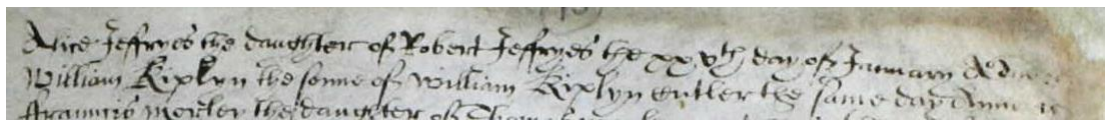 Alice Jeffryes the daughter of Robert Jeffryes the xxvth day of January
William Kiplyn the sonne of William Kiplyn cutler the same day Anno
the daughter of